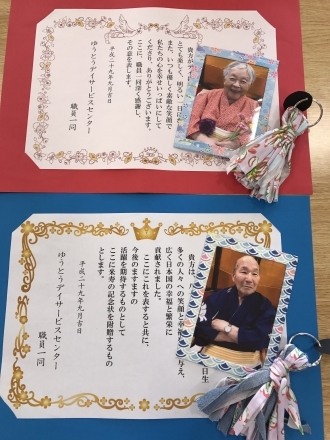 貴方が
とても楽しく、明るい一日に
また、いつも優しく素敵な笑顔で
私たちの心を幸せいっぱいにして
くださり、ありがとうございます。
ここに、職員一同深く感謝し、
その意を表します。
平成二十九年九月吉日
ゆうとうデイサービスセンター
職員一同
貴方は、八
日生
多くの人々への笑顔と幸
与え、
広く日本国の幸福と繁栄に
貢献されました。
ここにこれを表すると共に、
今後のますますの
活躍を期待するものとして
ここに米寿の記念状を附贈するもの
とします。
平成二十九年九月吉日
ゆうとうデイサービスセンター
職員一同